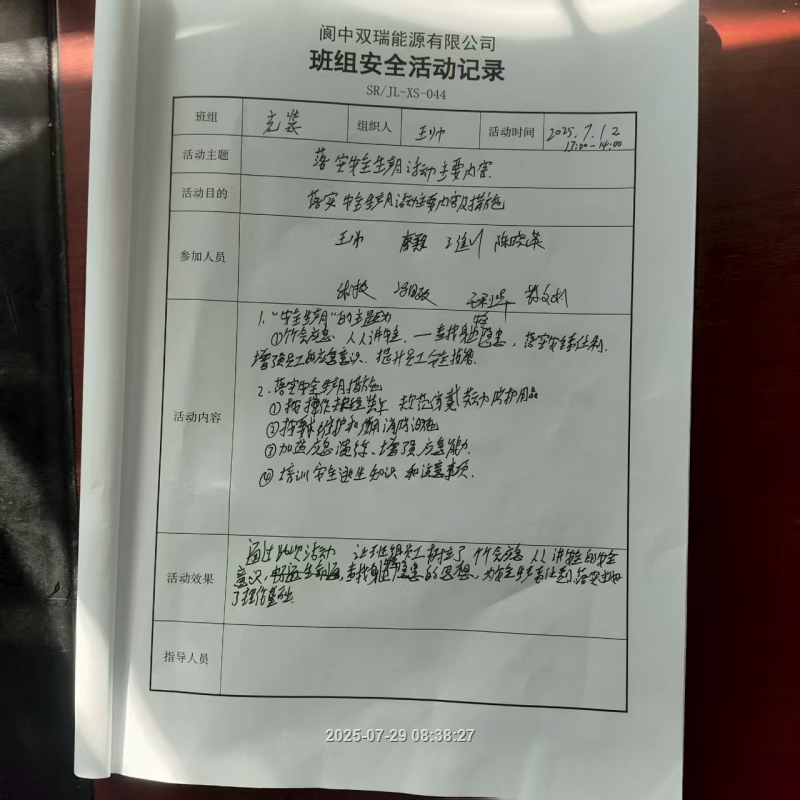 阆中双瑞能源有限公司
班组安全活动记录
SR/JL-XS-044
班组 充装 组织人 王帅 活动时间 2025.7.12
13:00-14:00
活动主题 落实安全生产月活动主要内容.
活动目的 落实安全生产月活动主要内容及措施
参加人员 王帅 陈晓英
活动内容
1."安全生产月"的主题为
①人人讲安全、查找身边隐患,落实安全责任制.
增强员工的应急意识、提升员工安全技能.
2.落实安全生产月措施
①按操作规程装车 规范穿戴劳动防护用品
②按要求维护和使用消防设施
③加强应急演练、增强应急能力.
④培训安全逃生知识和注意事项.
活动效果 通过此次活动 让班组员工树立了 人人讲安全的安全
意识,查找身边隐患的思想,为安全生产责任制落实
了基础.
指导人员
2025-07-29 08:38:27